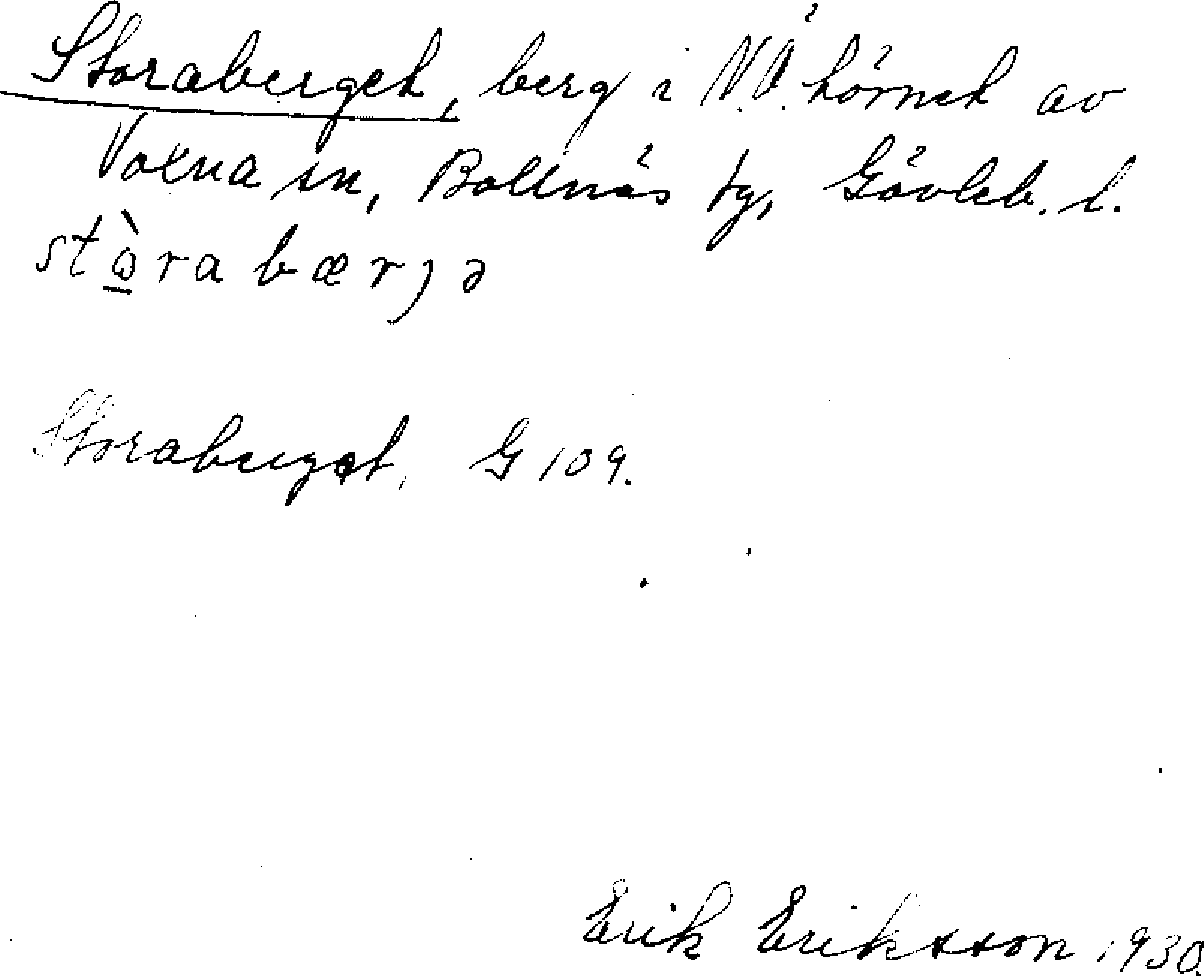 Storaberget, berg i N.Ö. hörnet av
Voxna sn, Bollnäs tg, Gävleb. l.
stòrabærjə
Storaberget, G 109.
Erik Eriksson 1930